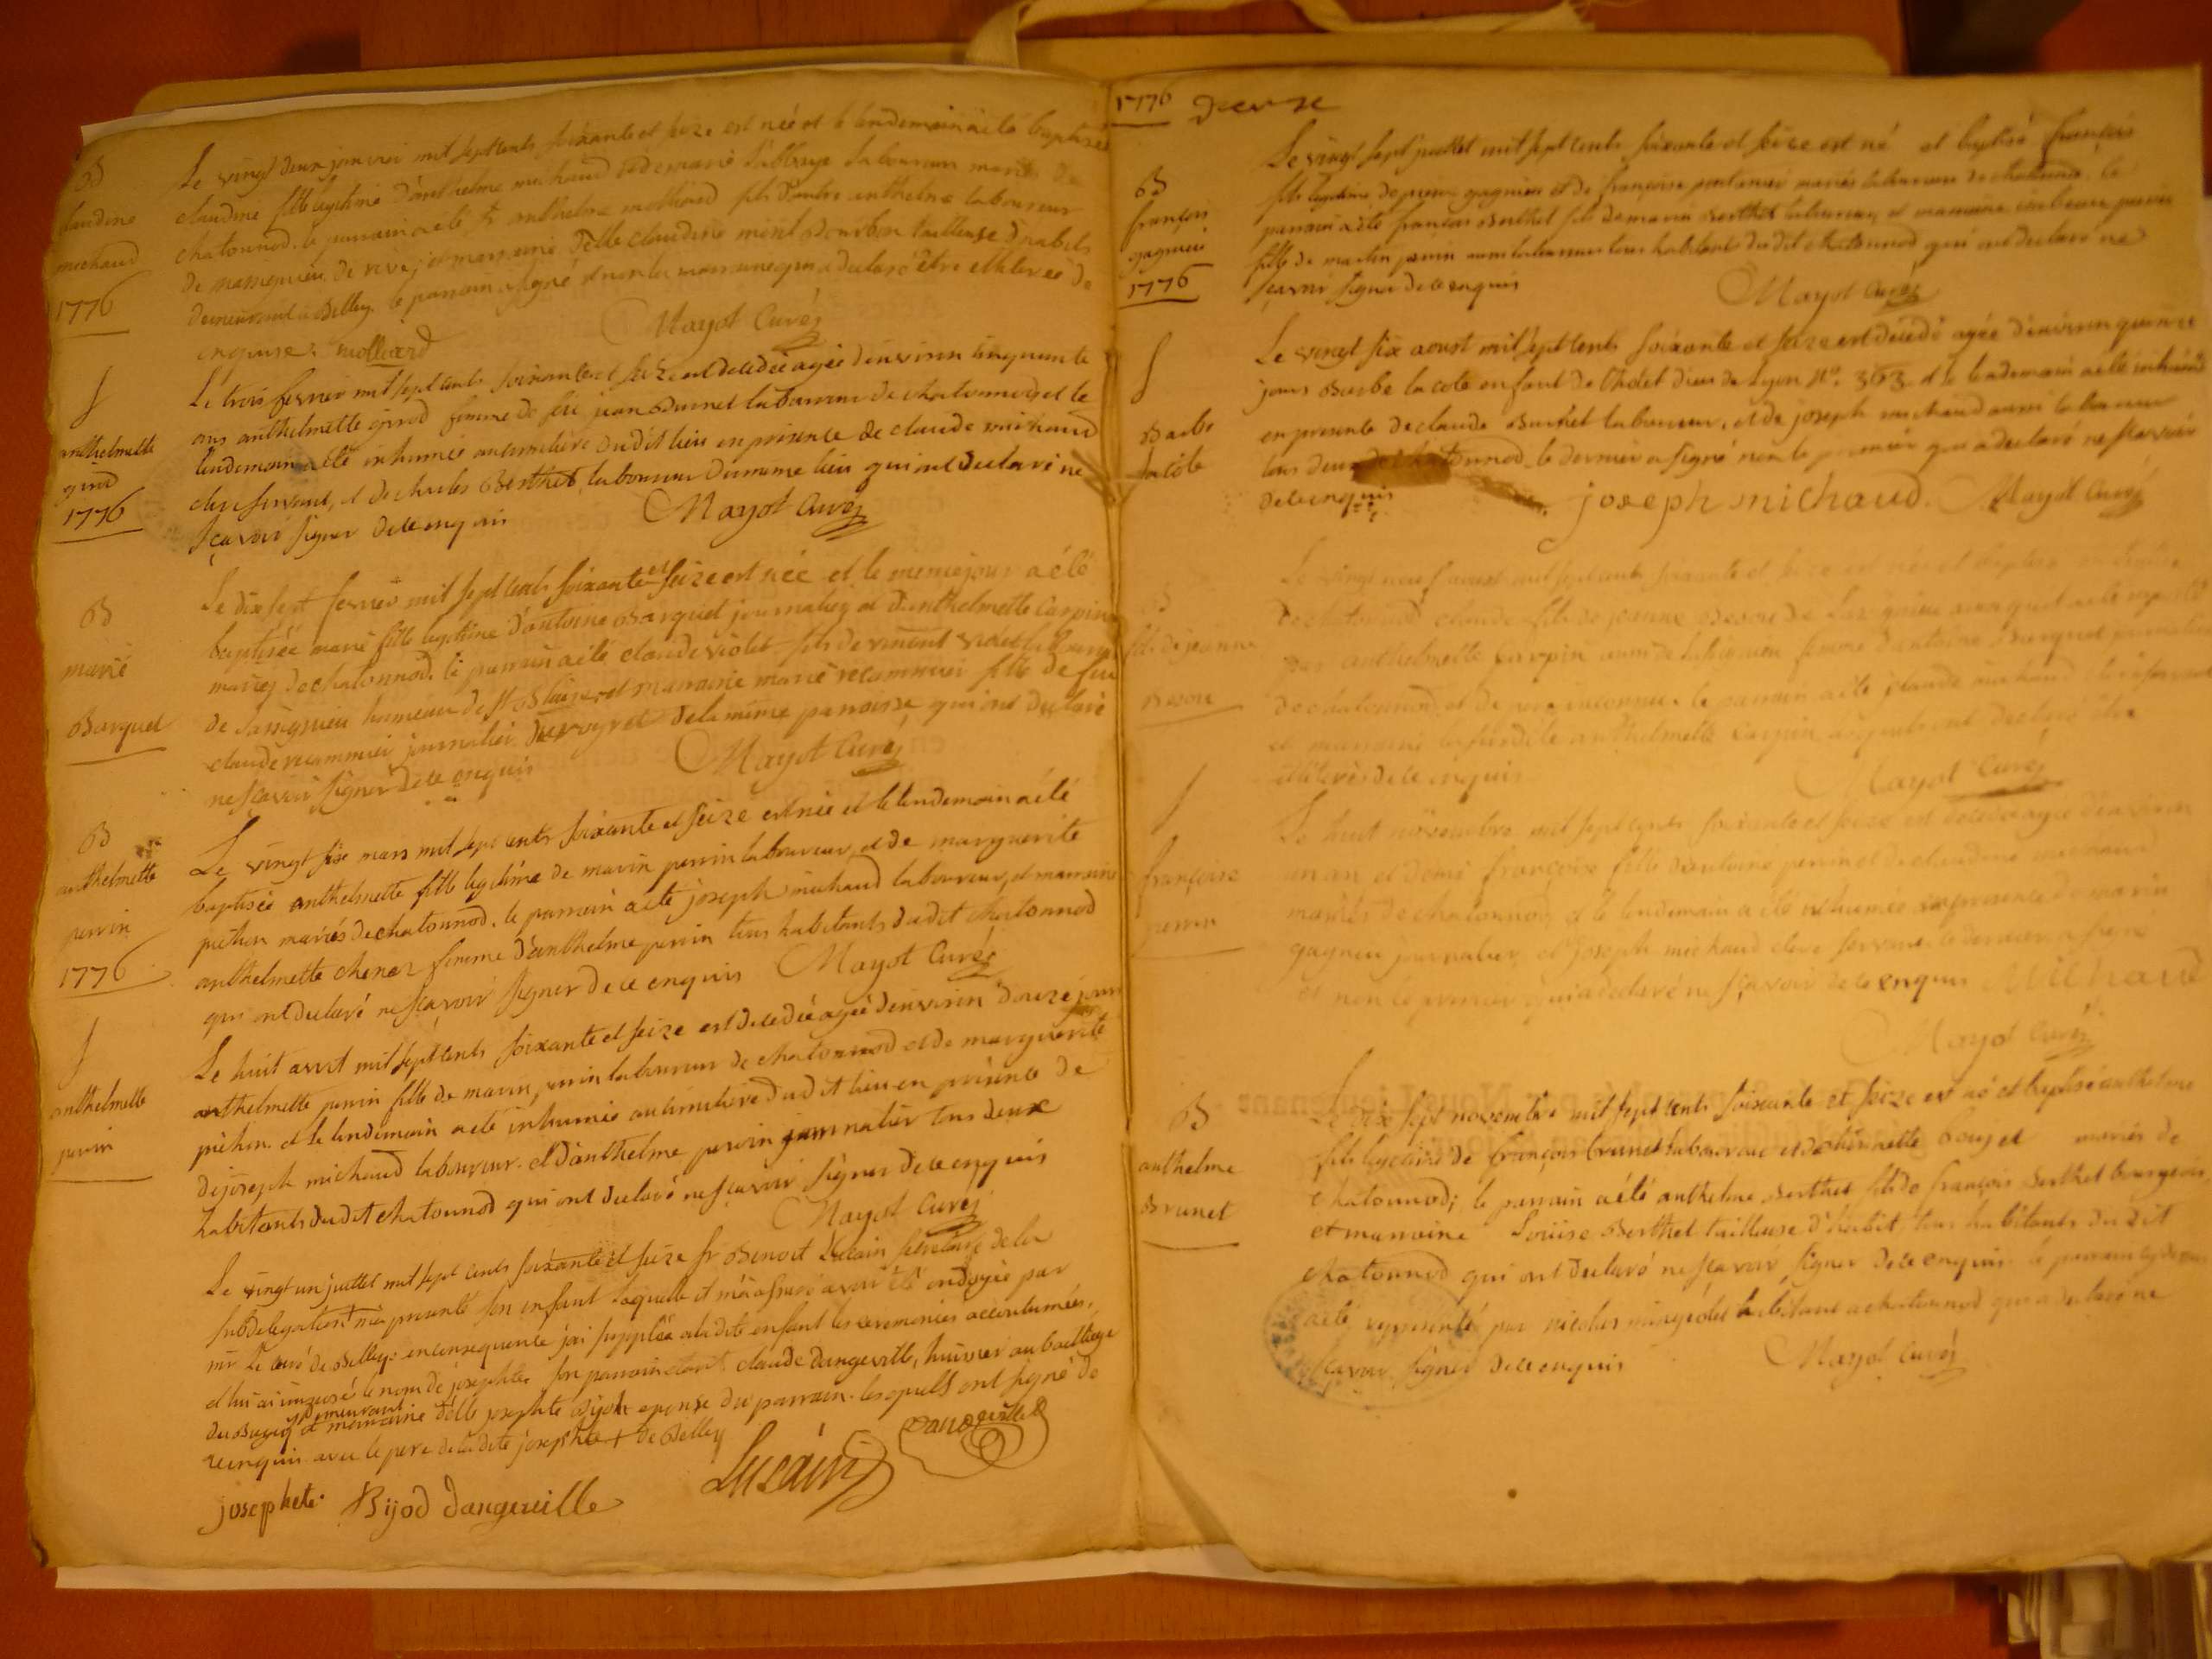 B
claudine
michaud
1776
Le vingt deux janvier mil sept cents soixante et seize est née et le lendemain a été baptisée
claudine fille legitime d'anthelme michaud et de marie laboureur mariés de
chatonnod. le parrain a été anthelme molliard fils d'autre anthelme laboureur
de massignieu de rive, et marraine delle claudine tailleuse d'habits
demeurant a Belley. le parrain a signé et non la marraine qui a declaré être illiterée de
enquise. molliard Mayot Curé
f
anthelmette
girod
1776
Le trois fevrier mil sept cents soixante et seize est decedée agée d'environ cinquante
ans anthelmette girod femme de feu jean Burnet laboureur de chatonnod et le
lendemain a été inhumée au cimetière dudit lieu en présence de claude michaud
clerc servant, et de charles Berthet laboureur du meme lieu qui ont declaré ne
sçavoir signer de ce enquis Mayot Curé
B
marie
Barquet
Le dix sept fevrier mil sept cents soixante et seize est née et le meme jour a été
baptisée marie fille legitime d'antoine Barquet journalier et d'anthelmette Carpin
mariés de chatonnod. le parrain a été claude violet fils de vincent violet
de Lassignieu hameau de St Blaise et marraine marie recammier fille de feu
claude recammier journalier de la même paroisse, qui ont declaré
ne sçavoir signer de ce enquis Mayot Curé
B
anthelmette
perrin
1776
Le vingt six mars mil sept cents soixante et seize est née et le lendemain a été
baptisée anthelmette fille legitime de marin perrin laboureur, et de marguerite
pichon mariés de chatonnod. le parrain a été joseph michaud laboureur, et marraine
anthelmette chenez femme d'anthelme perrin tous habitants dudit chatonnod
qui ont declaré ne sçavoir signer de ce enquis Mayot Curé
f
anthelmette
perrin
Le huit avril mil sept cents soixante et seize est decedée agée d'environ douze jours
anthelmette perrin fille de marin perrin laboureur de chatonnod et de marguerite
pichon. et le lendemain a été inhumée au cimetière dudit lieu en présence de
de joseph michaud laboureur. et d'anthelme perrin journalier tous deux
habitants dudit chatonnod qui ont declaré ne sçavoir signer de ce enquis
Mayot Curé
Le vingt un juillet mil sept cents soixante et seize sr Benoit Lucain secretaire de la
subdelegation m'a presenté son enfant laquelle il m'a assuré avoir été ondoyée par
mr le curé de Belley: en consequence j'ai suppléé a ladite enfant les ceremonies accoutumées,
et lui ai imposé le nom de josephte. son parrain étant claude dangeville, huissier au bailliage
du Bugey et marraine delle josephte Bijod epouse du parrain. lesquels ont signé de
ce enquis avec le pere de ladite josephte + de Belley
+ demeurant
Lucain Dangeville
josephte Bijod dangeville
1776 deuxe
B
françois
gagnieu
1776
Le vingt sept juillet mil sept cents soixante et seize est né et baptisé françois
fils legitime de pierre gagnieu et de françoise mariés laboureurs de chatonnod. le
parrain a été françois Berthet fils de marin Berthet laboureur, et marraine perrin
fille de martin perrin aussi laboureur tous habitants dudit chatonnod qui ont declaré ne
sçavoir signer de ce enquis Mayot Curé
f
Barbe
lacote
Le vingt six aoust mil sept cents soixante et seize est decedé agée d'environ quinze
jours Barbe lacote enfant de l'hotel dieu de Lyon No. 363. et le lendemain a été inhumée
en presence de claude Burnet laboureur, et de joseph michaud aussi laboureur
tous deux de chatonnod le dernier a signé non le premier qui a declaré ne sçavoir
de ce enquis joseph michaud. Mayot Curé
B
fils de jeanne
Le vingt neuf aoust mil sept cents soixante et seize est né et baptisé
de chatonnod claude fils de jeanne de Lassignieu auquel a été
par anthelmette carpin femme d'antoine Barquet journalier
de chatonnod, et de pere inconnu. le parrain a été claude michaud clerc servant
et marraine la susdite anthelmette Carpin, lesquels ont declaré être
illiterés de ce enquis Mayot Curé
f
françoise
perrin
Le huit novembre mil sept cents soixante et seize est decedée agée d'environ
un an et demi françoise fille d'antoine perrin et de claudine michaud
mariés de chatonnod, et le lendemain a été inhumée en presence de marin
gagnieu journalier, et joseph michaud clerc servant. le dernier a signé
et non le premier qui a declaré ne sçavoir de ce enquis Michaud
Mayot Curé
B
anthelme
Brunet
Le dix sept novembre mil sept cents soixante et seize est né et baptisé anthelme
fils legitime de françois brunet laboureur et de boujet mariés de
chatonnod; le parrain a été anthelme Berthet fils de françois Berthet bourgeois
et marraine Louise Berthet tailleuse d'habit, tous habitants dudit
chatonnod qui ont declaré ne sçavoir signer de ce enquis. le parrain
a été representé par nicolas habitant a chatonnod qui a declaré ne
sçavoir signer de ce enquis Mayot Curé